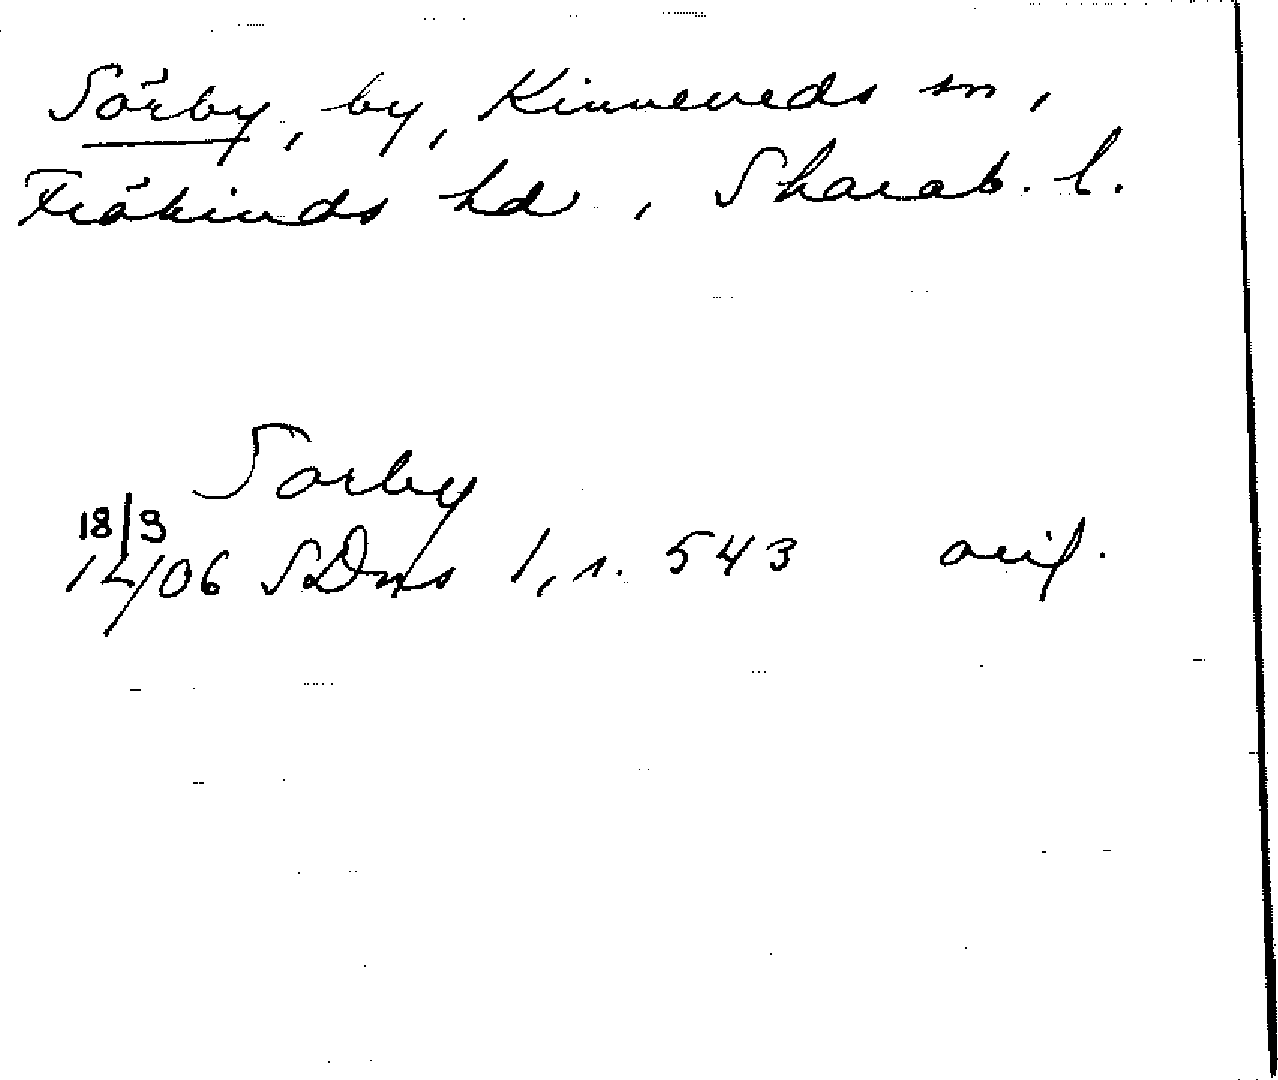 Sörby, by, Kinneveds sn,
Frökinds hd, Skarab. l.
Sorby
18/3
1406 SDns 1, s. 543 avg.